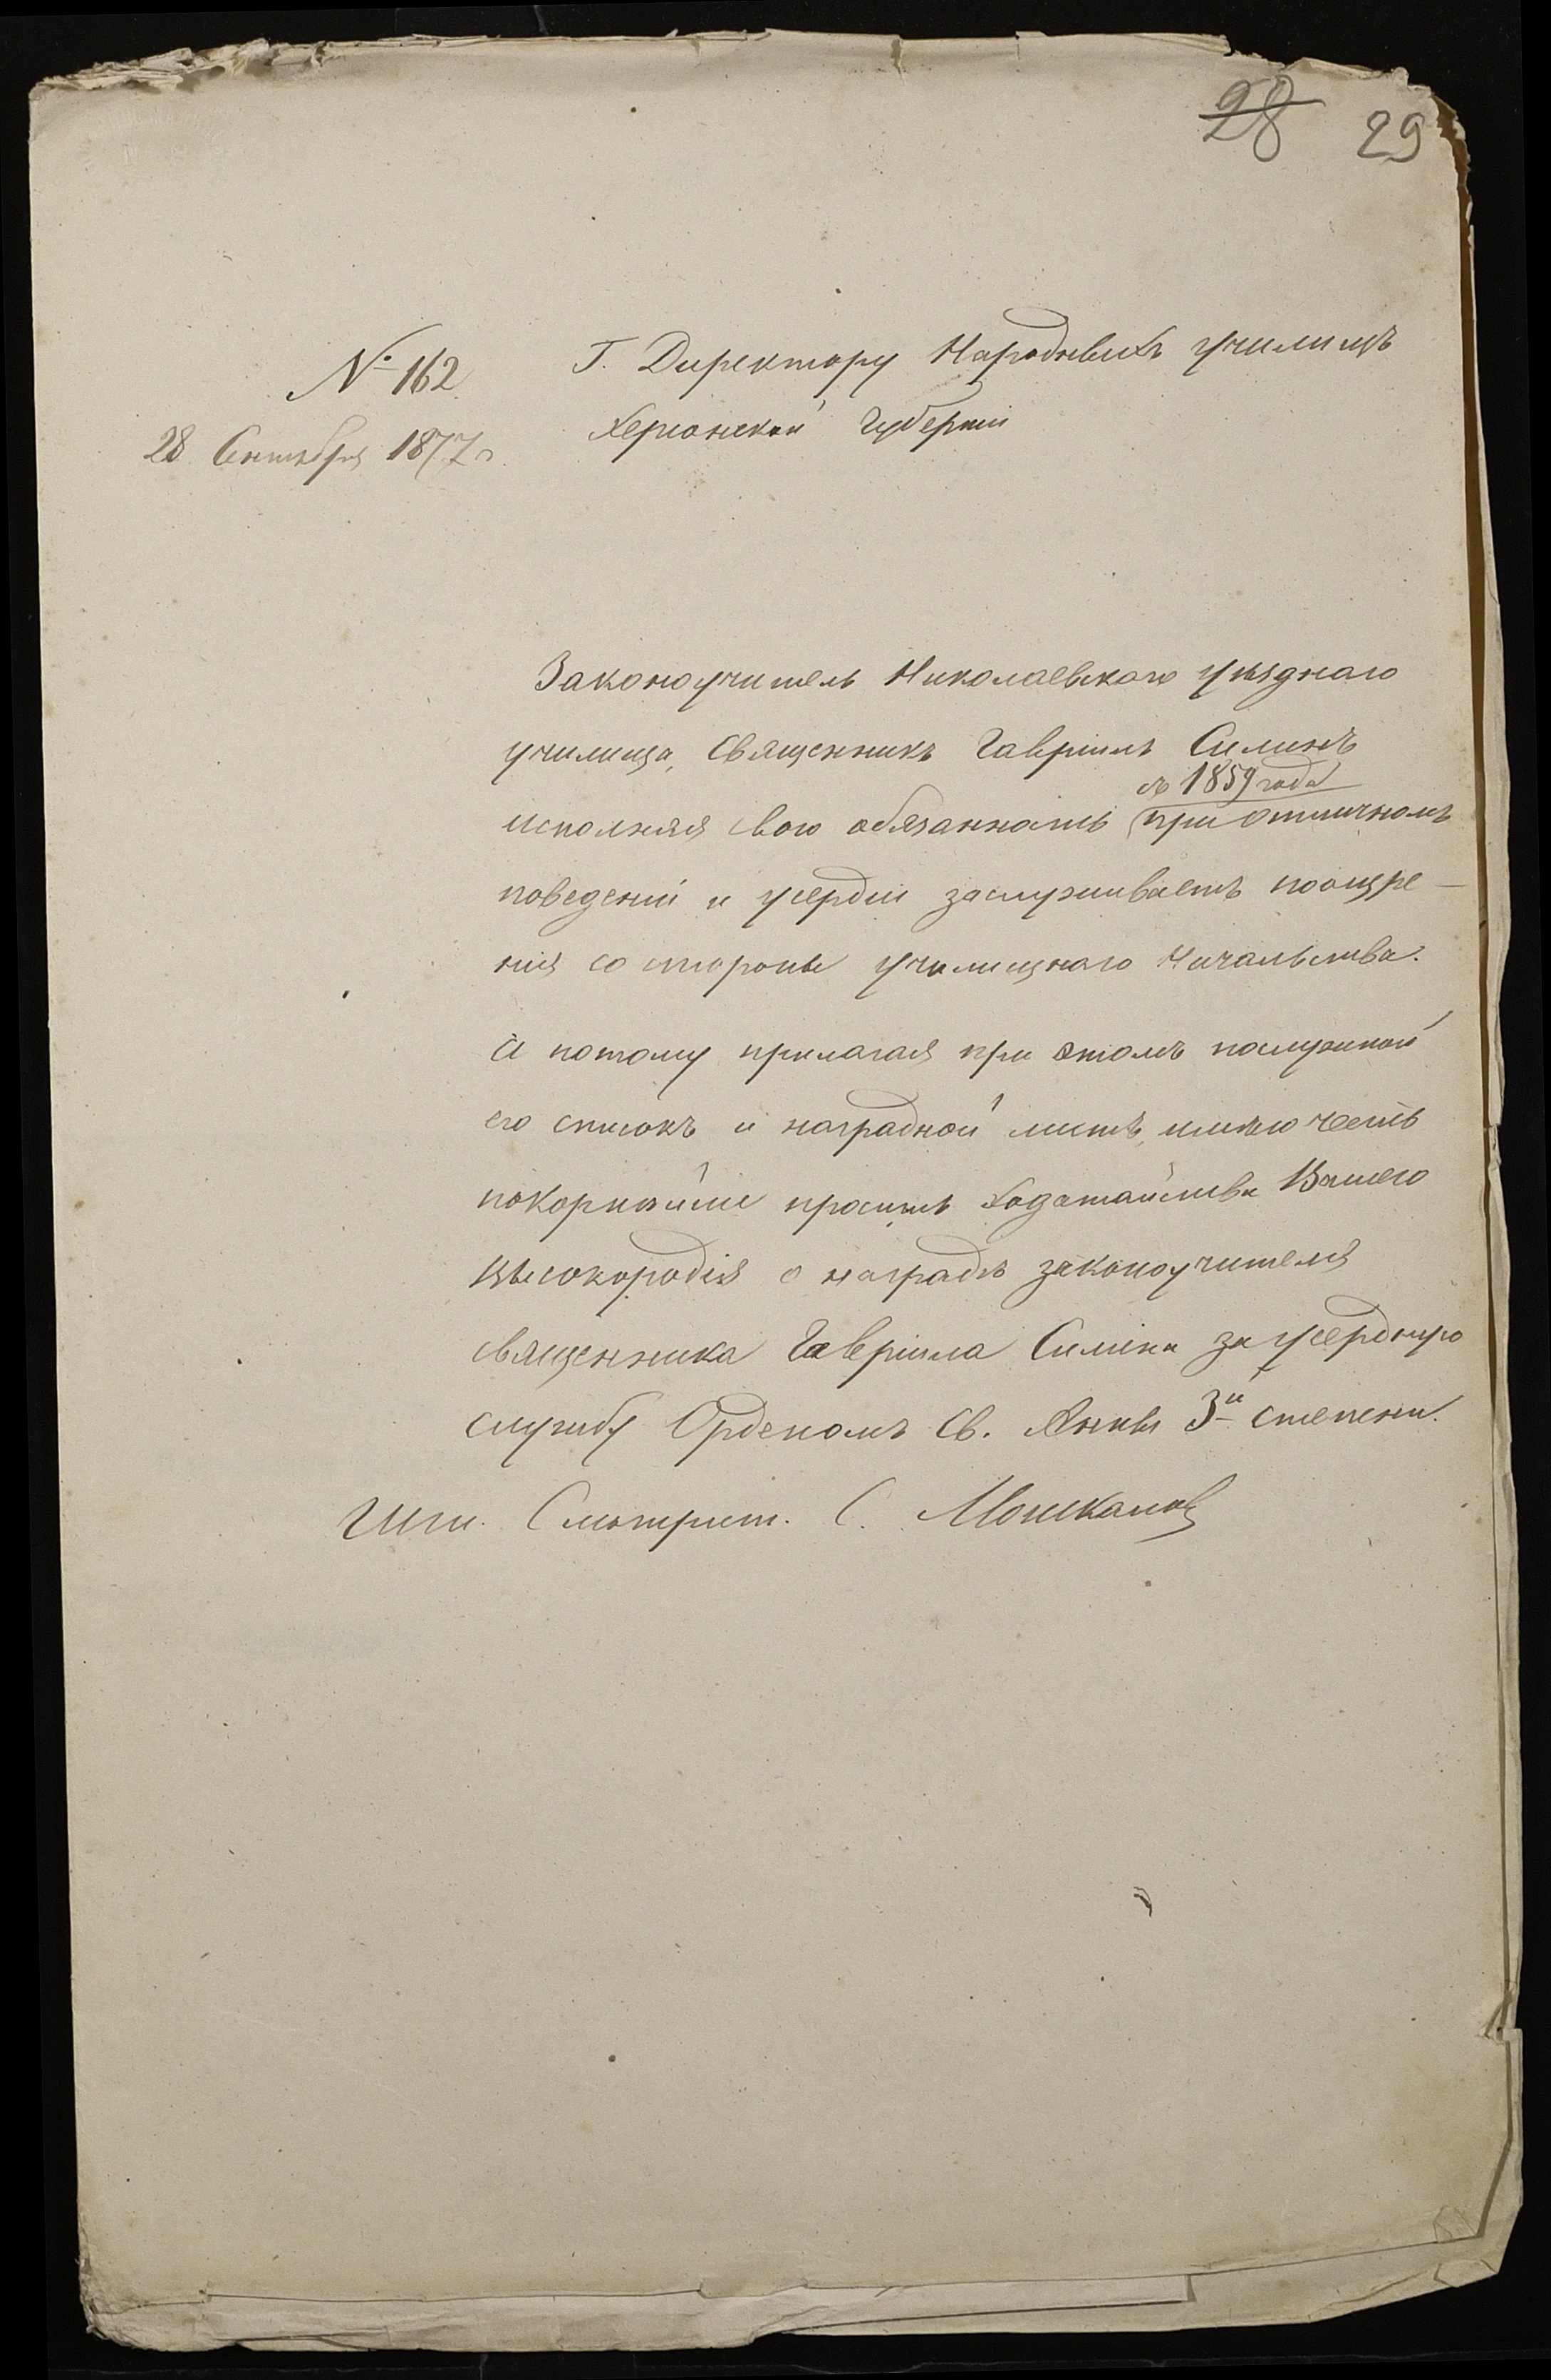 28 29
№ 162
28 Сентября 1877 г.
Г. Директору Народныхъ училищъ
Херсонской Губерніи
Законоучитель Николаевскаго уѣзднаго
училища, Священникъ Гавріилъ Силинъ
съ 1859 года
исполняя свою обязанность при отличномъ
поведеніи и усердіи заслуживаетъ поощре-
нія со стороны училищнаго Начальства.
А потому прилагая при этомъ послужной
его списокъ и наградной листъ, имѣю честь
покорнѣйше просить ходатайства Вашего
Высокородія о наградѣ законоучителя
священника Гавріила Силина за усердную
службу Орденомъ Св. Анны 3й степени.
Шт. Смотрит. С.